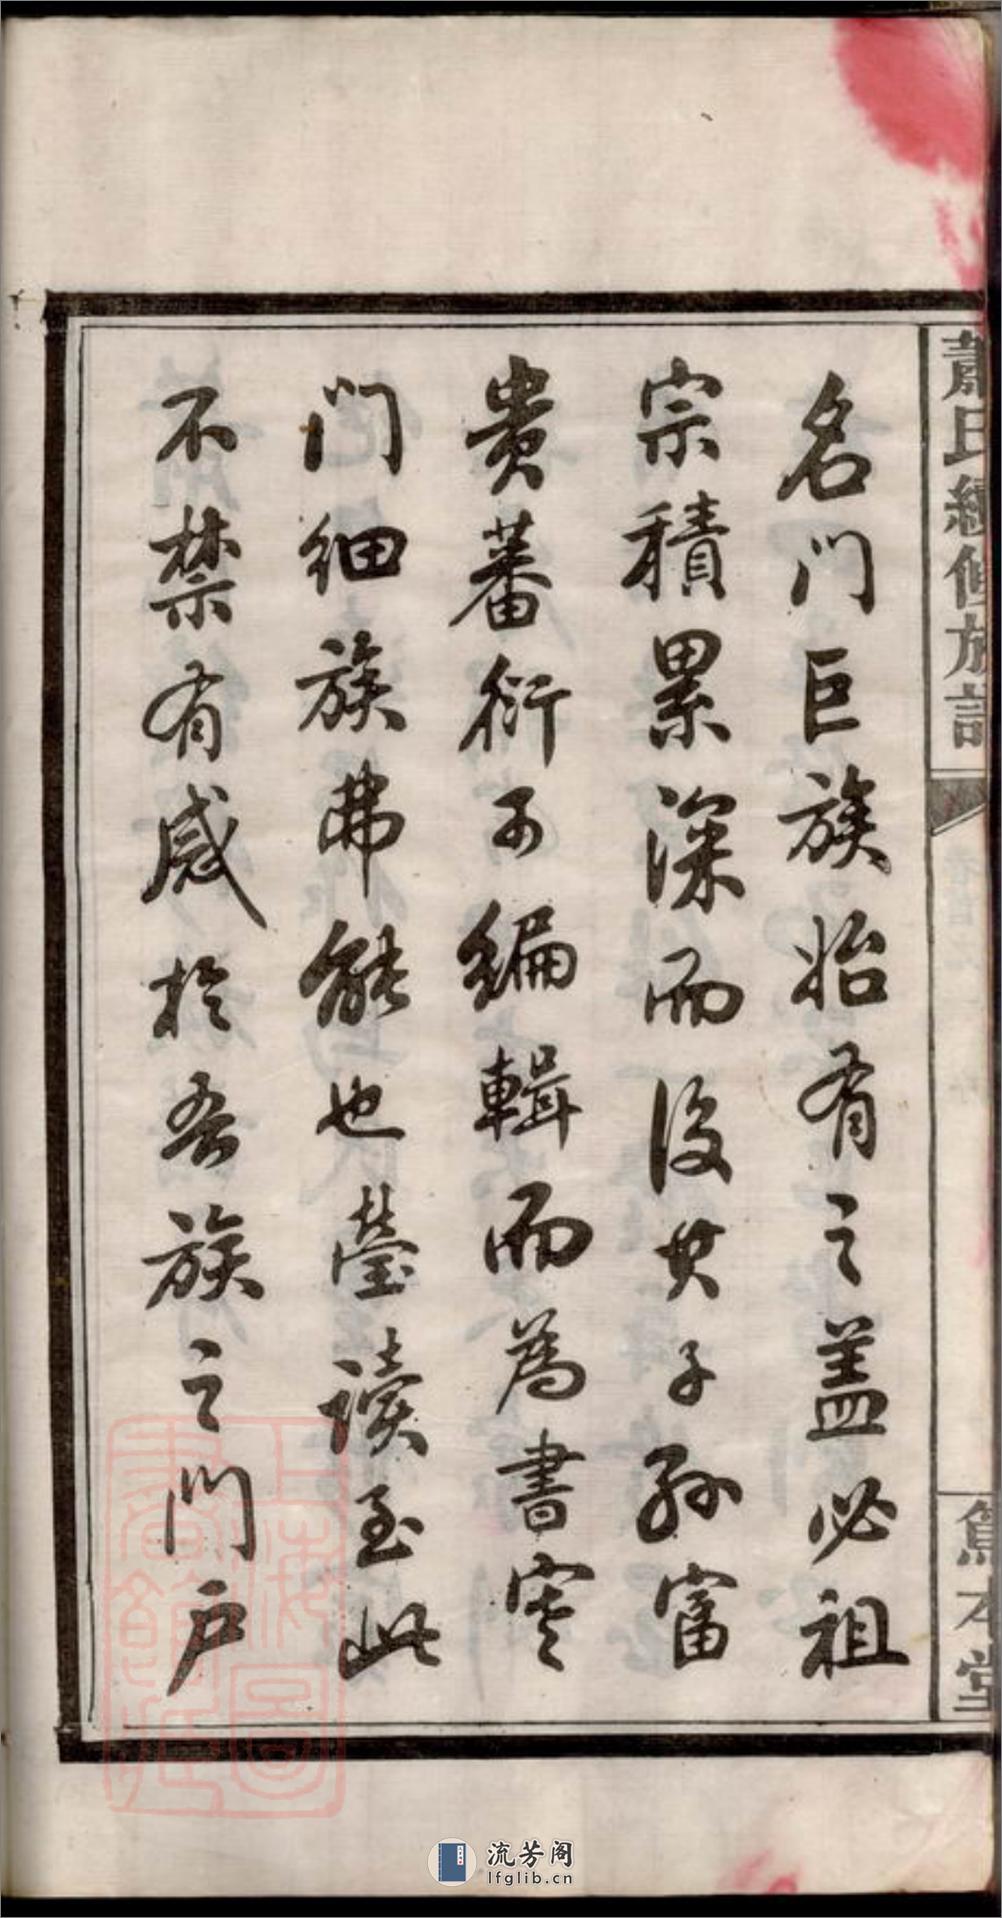 蕭氏續修族譜
篤本堂
名門巨族始有之蓋必祖
宗積累深而後其子孫富
貴蕃衍可編輯而為書寒
門細族弗能也瑩讀至此
不禁有感於吾族之門戶
上海圖書館藏
流芳阁
lfglib.cn